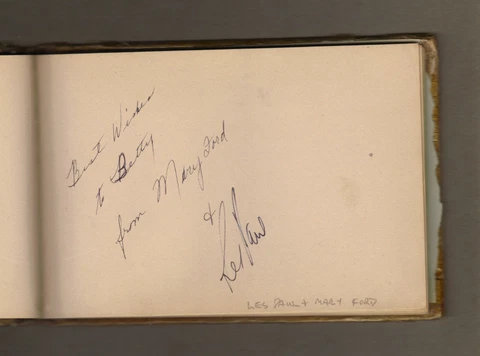 Best Wishes
to Betty
from Mary Ford
&
Les Paul
LES PAUL + MARY FORD